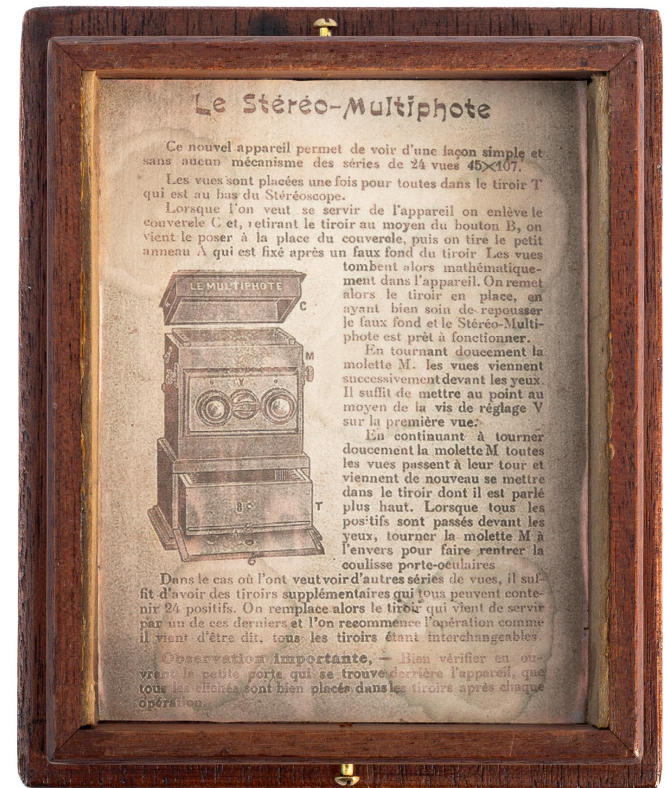 Le Stéréo-Multiphote
Ce nouvel appareil permet de voir d'une façon simple et
sans aucun mécanisme des séries de 24 vues 45×107.
Les vues sont placées une fois pour toutes dans le tiroir T
qui est au bas du Stéréoscope.
Lorsque l'on veut se servir de l'appareil on enlève le
couvercle C et, retirant le tiroir au moyen du bouton B, on
vient le poser à la place du couvercle, puis on tire le petit
anneau A qui est fixé après un faux fond du tiroir Les vues
tombent alors mathématique-
ment dans l'appareil. On remet
alors le tiroir en place, en
ayant bien soin de repousser
le faux fond et le Stéréo-Multi-
phote est prêt à fonctionner.
En tournant doucement la
molette M. les vues viennent
successivement devant les yeux.
Il suffit de mettre au point au
moyen de la vis de réglage V
sur la première vue.
En continuant à tourner
doucement la molette M toutes
les vues passent à leur tour et
viennent de nouveau se mettre
dans le tiroir dont il est parlé
plus haut. Lorsque tous les
positifs sont passés devant les
yeux, tourner la molette M à
l'envers pour faire rentrer la
coulisse porte-oculaires
LE MULTIPHOTE
C
M
V
B
T
Dans le cas où l'ont veut voir d'autres séries de vues, il suf-
fit d'avoir des tiroirs supplémentaires qui tous peuvent conte-
nir 24 positifs. On remplace alors le tiroir qui vient de servir
par un de ces derniers et l'on recommence l'opération comme
il vient d'être dit, tous les tiroirs étant interchangeables
Observation importante, — Bien vérifier en ou-
vrant la petite porte qui se trouve derrière l'appareil, que
tous les clichés sont bien placés dans les tiroirs après chaque
opération